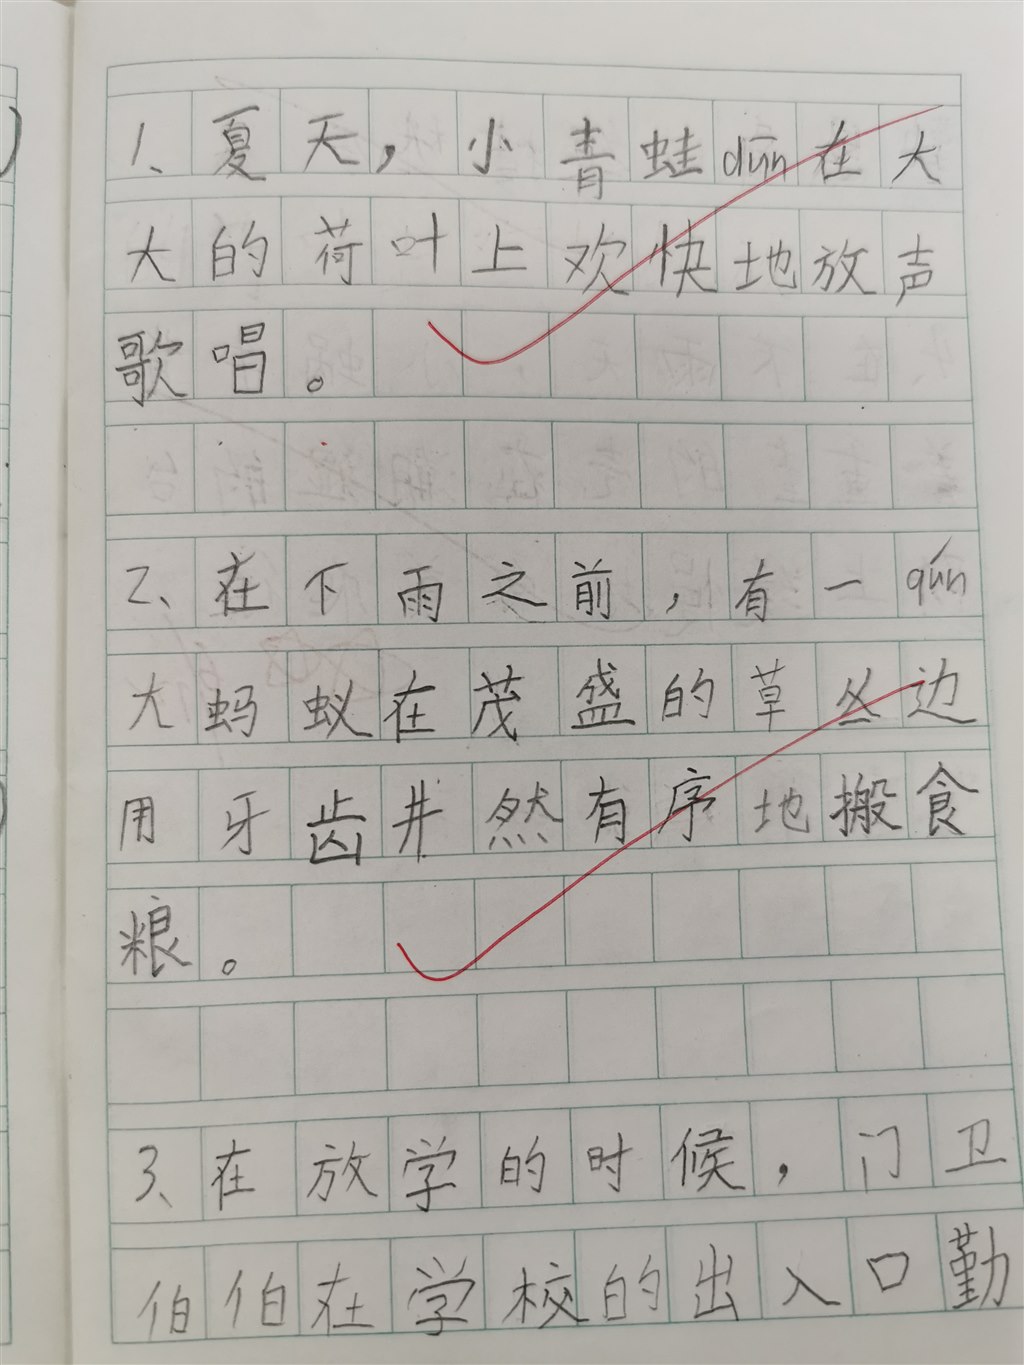 1、夏天，小青蛙dūn在大
大的荷叶上欢快地放声
歌唱。
2、在下雨之前，有一qún
大蚂蚁在茂盛的草丛边
用牙齿井然有序地搬食
粮。
3、在放学的时候，门卫
伯伯在学校的出入口勤